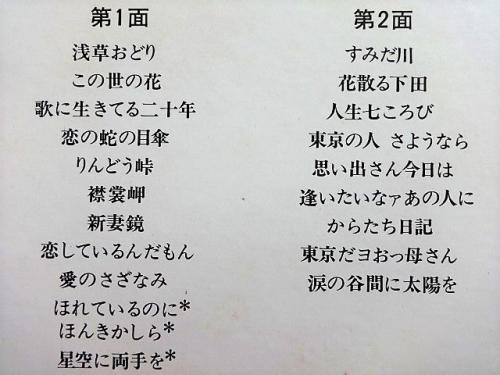 第1面
浅草おどり
この世の花
歌に生きてる二十年
恋の蛇の目傘
りんどう峠
襟裳岬
新妻鏡
恋しているんだもん
愛のさざなみ
ほれているのに*
ほんきかしら*
星空に両手を*
第2面
すみだ川
花散る下田
人生七ころび
東京の人 さようなら
思い出さん今日は
逢いたいなァあの人に
からたち日記
東京だヨおっ母さん
涙の谷間に太陽を